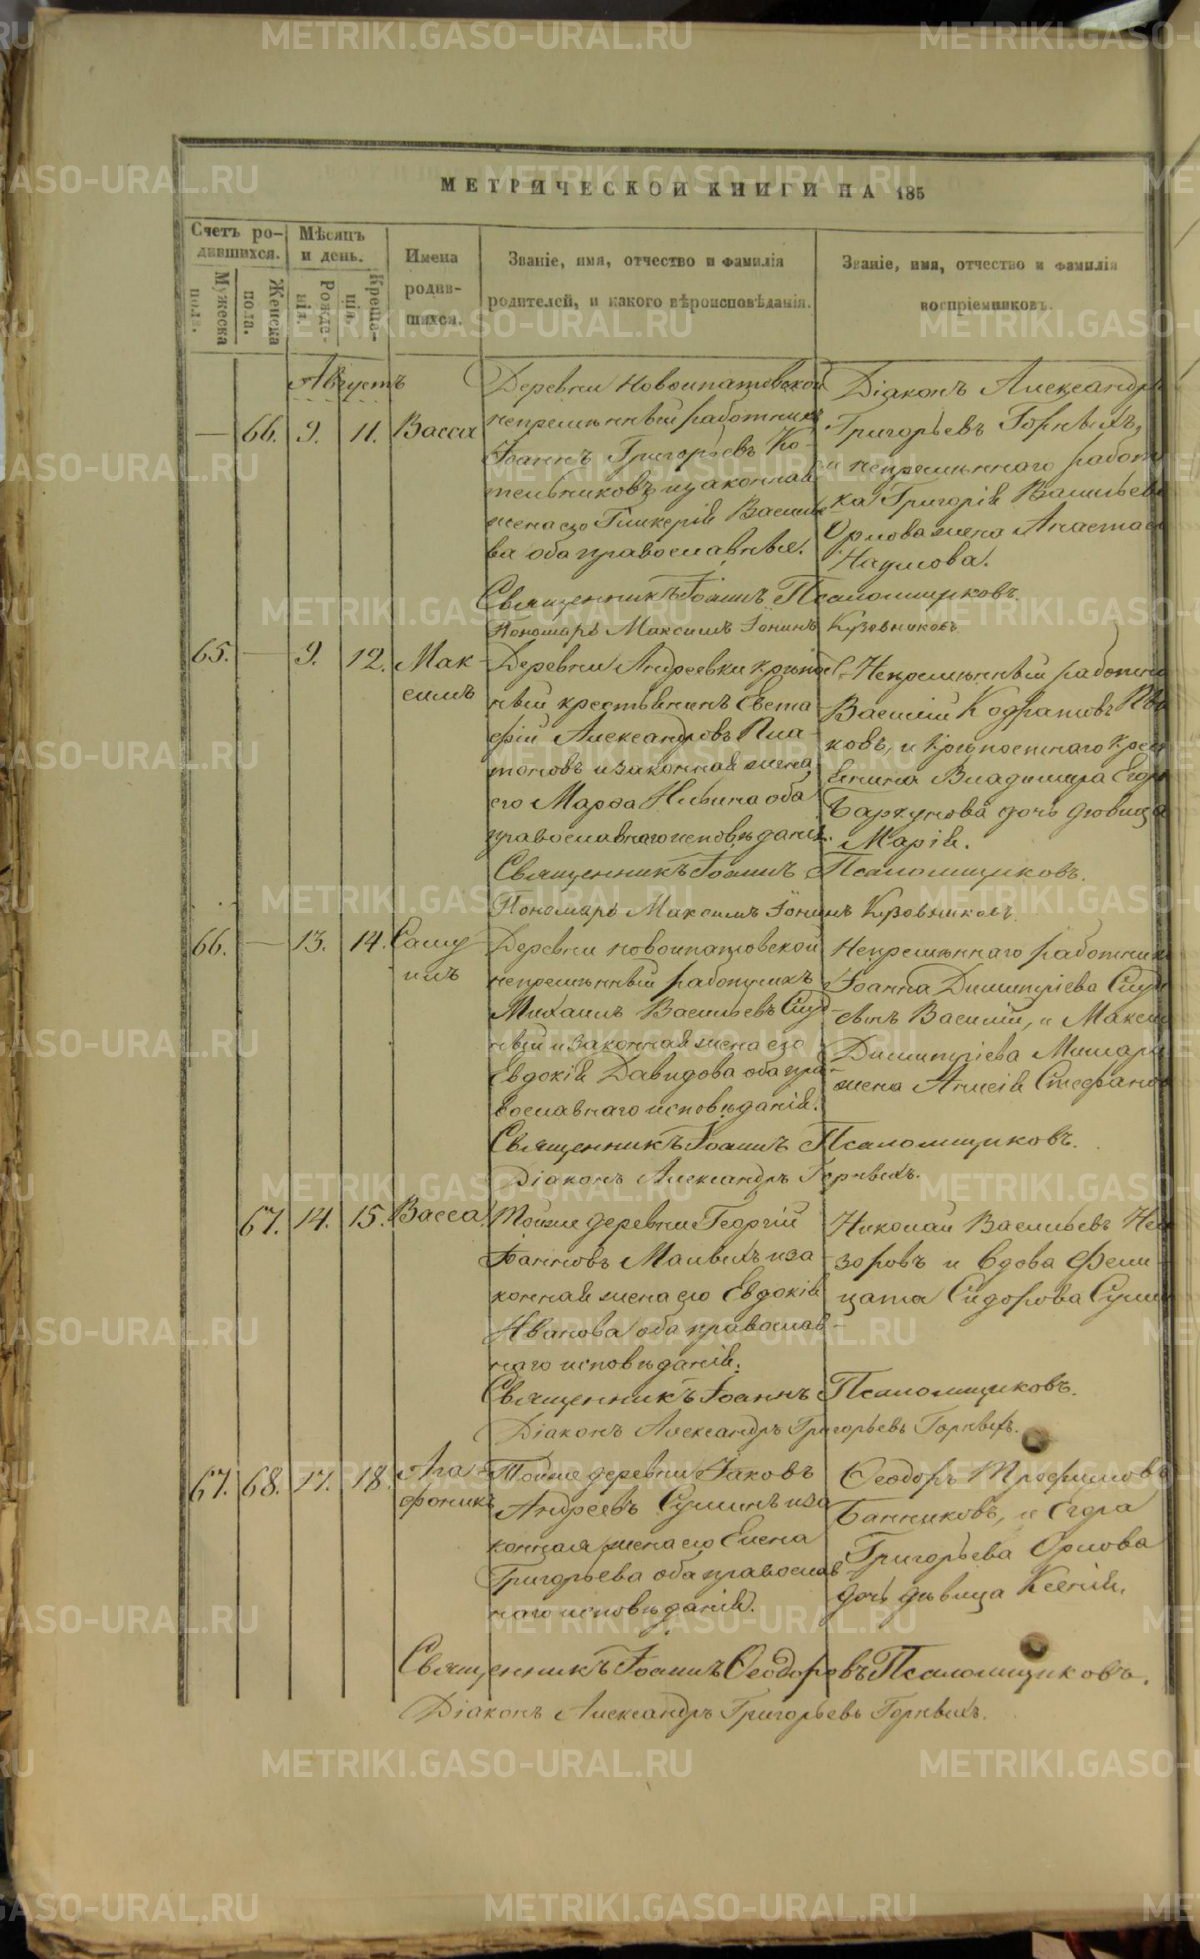 МЕТРИЧЕСКОЙ КНИГИ НА 185
Счетъ родившихся.
Мужеска пола.
Женска пола.
Мѣсяцъ и день.
Рожденія.
Крещенія.
Имена родившихся.
Званіе, имя, отчество и фамилія родителей, и какого вѣроисповѣданія.
Званіе, имя, отчество и фамилія воспріемниковъ.
Августъ
— 66. 9. 11. Васса
Деревни Новоипатовской
непремѣнный работникъ
Іоаннъ Григорьевъ Ко-
тельниковъ, и законная
жена его Гликерія Василье-
ва оба православные.
Діаконъ Александръ
Григорьевъ Горныхъ,
и непремѣннаго работни
ка Григорія Васильева
Орлова жена Анастасія
Наумова.
Священникъ Іоаннъ Псаломщиковъ.
Пономарь Максимъ Іонинъ Кузовниковъ
65. — 9. 12. Мак-
симъ
Деревни Андреевки крѣпост-
ный крестьянинъ Евста-
фій Александровъ Пла-
тоновъ и законная жена
его Марфа
оба
православнаго исповѣданія.
Непремѣнный работникъ
Василій Кодратовъ
ковъ, и крѣпостнаго крест
янина Владимира Егоро
дочь дѣвица
Марія.
Священникъ Іоаннъ Псаломщиковъ.
Пономарь Максимъ Іонинъ Кузовниковъ.
66. — 13. 14. Саму-
илъ
Деревни Новоипатовской
непремѣнный работникъ
Михаилъ Васильевъ
ный и законная жена его
Евдокія Давидова оба пра-
вославнаго исповѣданія.
Непремѣннаго работника
Іоанна Димитріева
сынъ Василій, и Макси
Димитріева
жена Анисія Стефанов
Священникъ Іоаннъ Псаломщиковъ.
Діаконъ Александръ Горныхъ.
67. 14. 15. Васса
Тойже деревни Георгій
Іоанновъ Малыхъ и за-
конная жена его Евдокія
Иванова оба православ-
наго исповѣданія.
Николай Васильевъ
зоровъ и вдова Фели-
цата Сидорова
Священникъ Іоаннъ Псаломщиковъ.
Діаконъ Александръ Григорьевъ Горныхъ.
67. 68. 17. 18. Ага-
фоникъ
Тойже деревни Іаковъ
Андреевъ Суминъ и за
конная жена его Елена
Григорьева оба православ-
наго исповѣданія.
Ѳеодоръ Трофимовъ
Банниковъ, и Егора
Григорьева Орлова
дочь дѣвица Ксенія.
Священникъ Іоаннъ Ѳеодоровъ Псаломщиковъ.
Діаконъ Александръ Григорьевъ Горныхъ.
METRIKI.GASO-URAL.RU